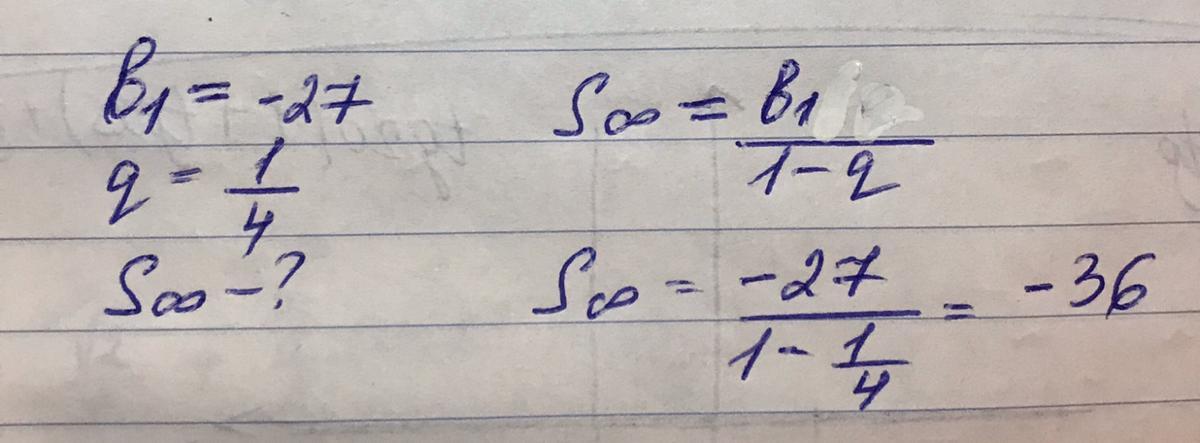 b₁ = -27
q = 1/4
S∞ - ?
S∞ = b₁/(1-q)
S∞ = -27/(1 - 1/4) = -36